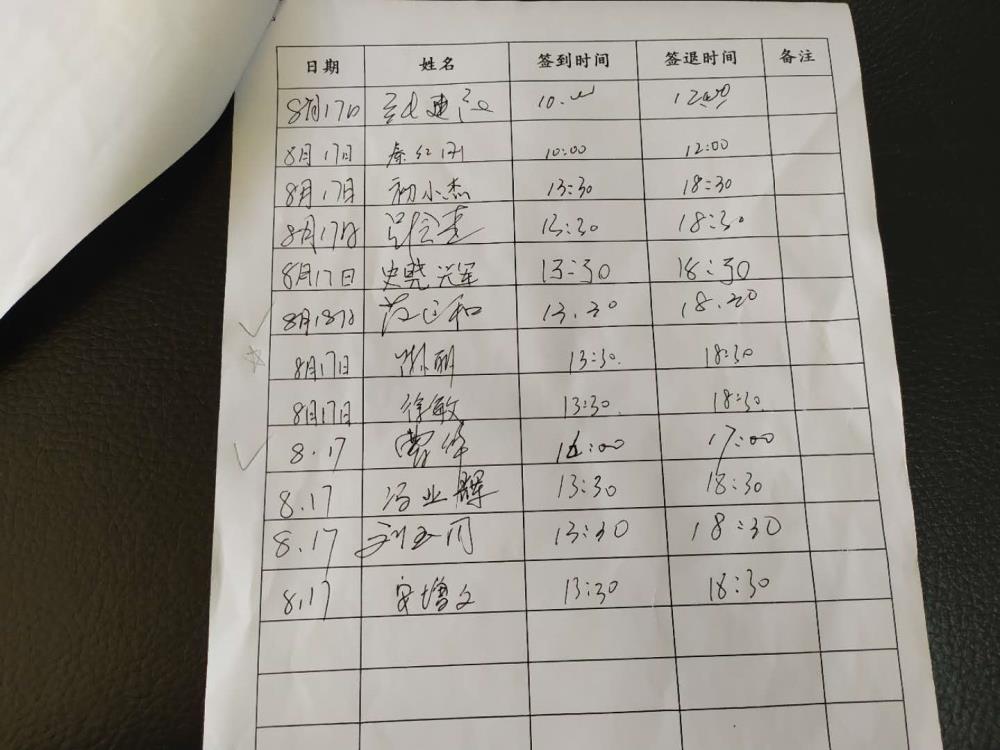 日期 姓名 签到时间 签退时间 备注
8月17日 10. 12:00
8月17日 秦红 10:00 12:00
8月17日 初小杰 13:30 18:30
8月17日 13:30 18:30
8月17日 史晓兴军 13:30 18:30
8月18日 范正和 13.30 18.30
8月17日 丽 13:30. 18:30
8月17日 徐敏 13:30. 18:30.
8.17 曹华 16:00 17:00
8.17 冯业辉 13:30 18:30
8.17 刘玉 13:30 18:30
8.17 安增文 13:30 18:30